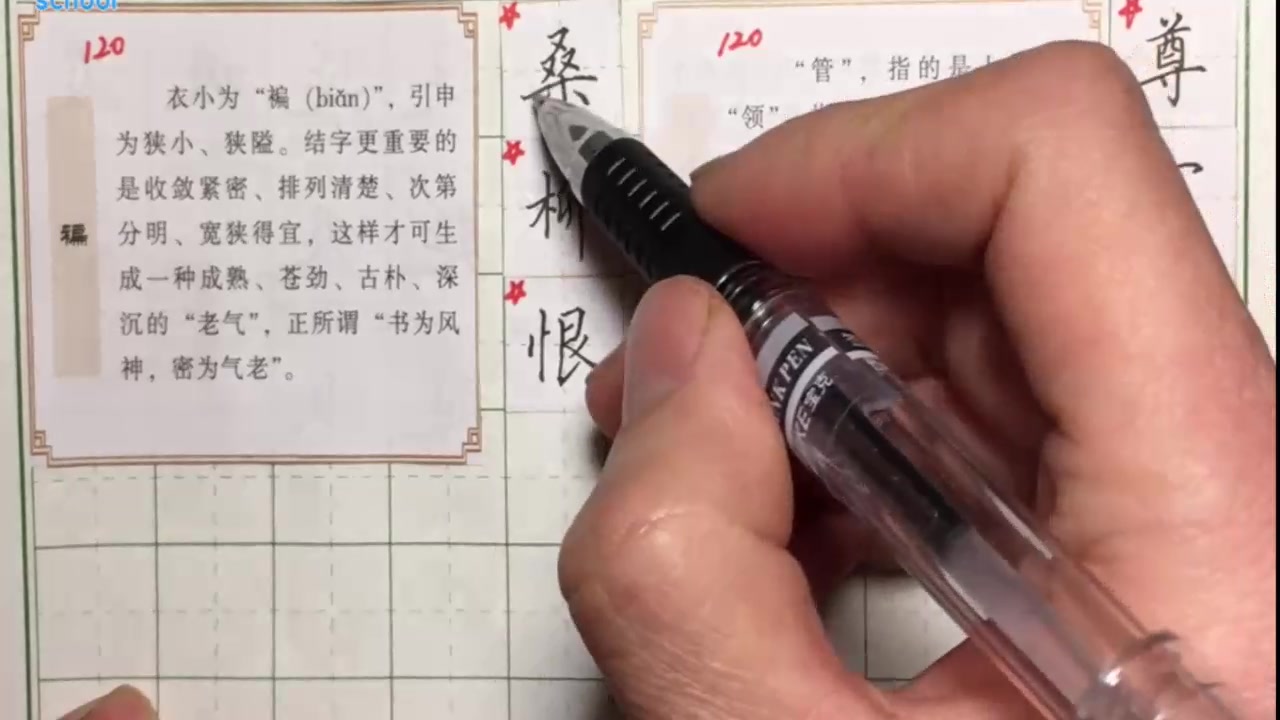 school
120
衣小为“褊（biǎn)”，引申
为狭小、狭隘。结字更重要的
是收敛紧密、排列清楚、次第
分明、宽狭得宜，这样才可生
成一种成熟、苍劲、古朴、深
沉的“老气”，正所谓“书为风
神，密为气老”。
褊
桑
柳
恨
120
“管”，指的是
“领”
尊
NK PEN
KE 宝克